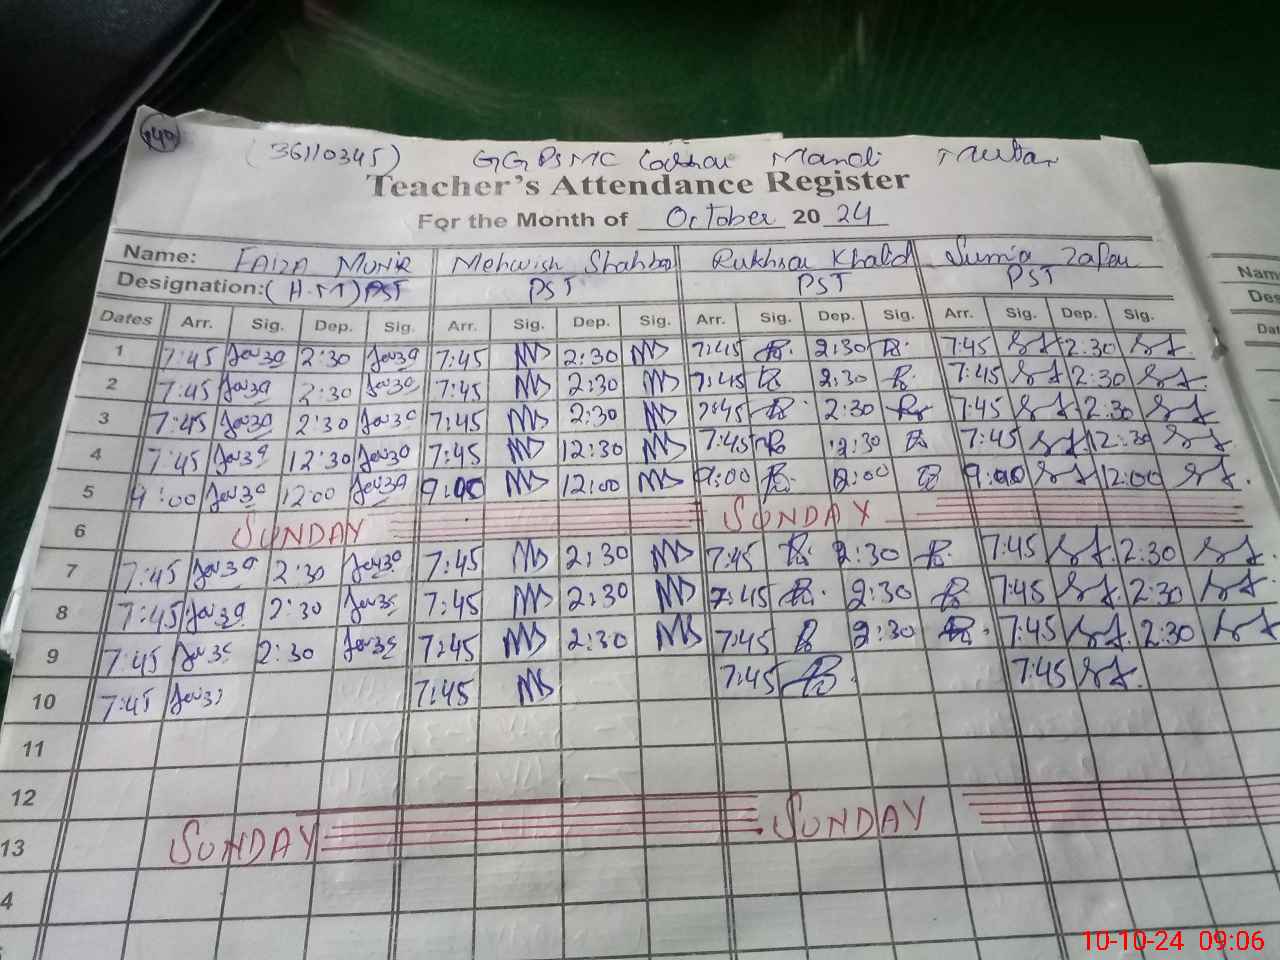 140
(36110345) GGPSMC Mandi
Teacher's Attendance Register
For the Month of October 20 24
Name: FAIZA MUNIR Mehwish Shahbaz Rukhsar Khalid Sumia Zafar Nam
Designation: (H.T) PST PST PST PST Des
Dates Arr. Sig. Dep. Sig. Arr. Sig. Dep. Sig. Arr. Sig. Dep. Sig. Arr. Sig. Dep. Sig. Dat
1 7:45 2:30 7:45 2:30 7:45 2:30 7:45 2:30
2 7:45 2:30 7:45 2:30 7:45 2:30 7:45 2:30
3 7:45 2:30 7:45 2:30 7:45 2:30 7:45 2:30
4 7:45 12:30 7:45 12:30 7:45 12:30 7:45 12:30
5 9:00 12:00 9:00 12:00 9:00 12:00 9:00 12:00
6 SUNDAY SUNDAY
7 7:45 2:30 7:45 2:30 7:45 2:30 7:45 2:30
8 7:45 2:30 7:45 2:30 7:45 2:30 7:45 2:30
9 7:45 2:30 7:45 2:30 7:45 2:30 7:45 2:30
10 7:45 7:45 7:45 7:45
11
12
13 SUNDAY SUNDAY
4
10-10-24 09:06